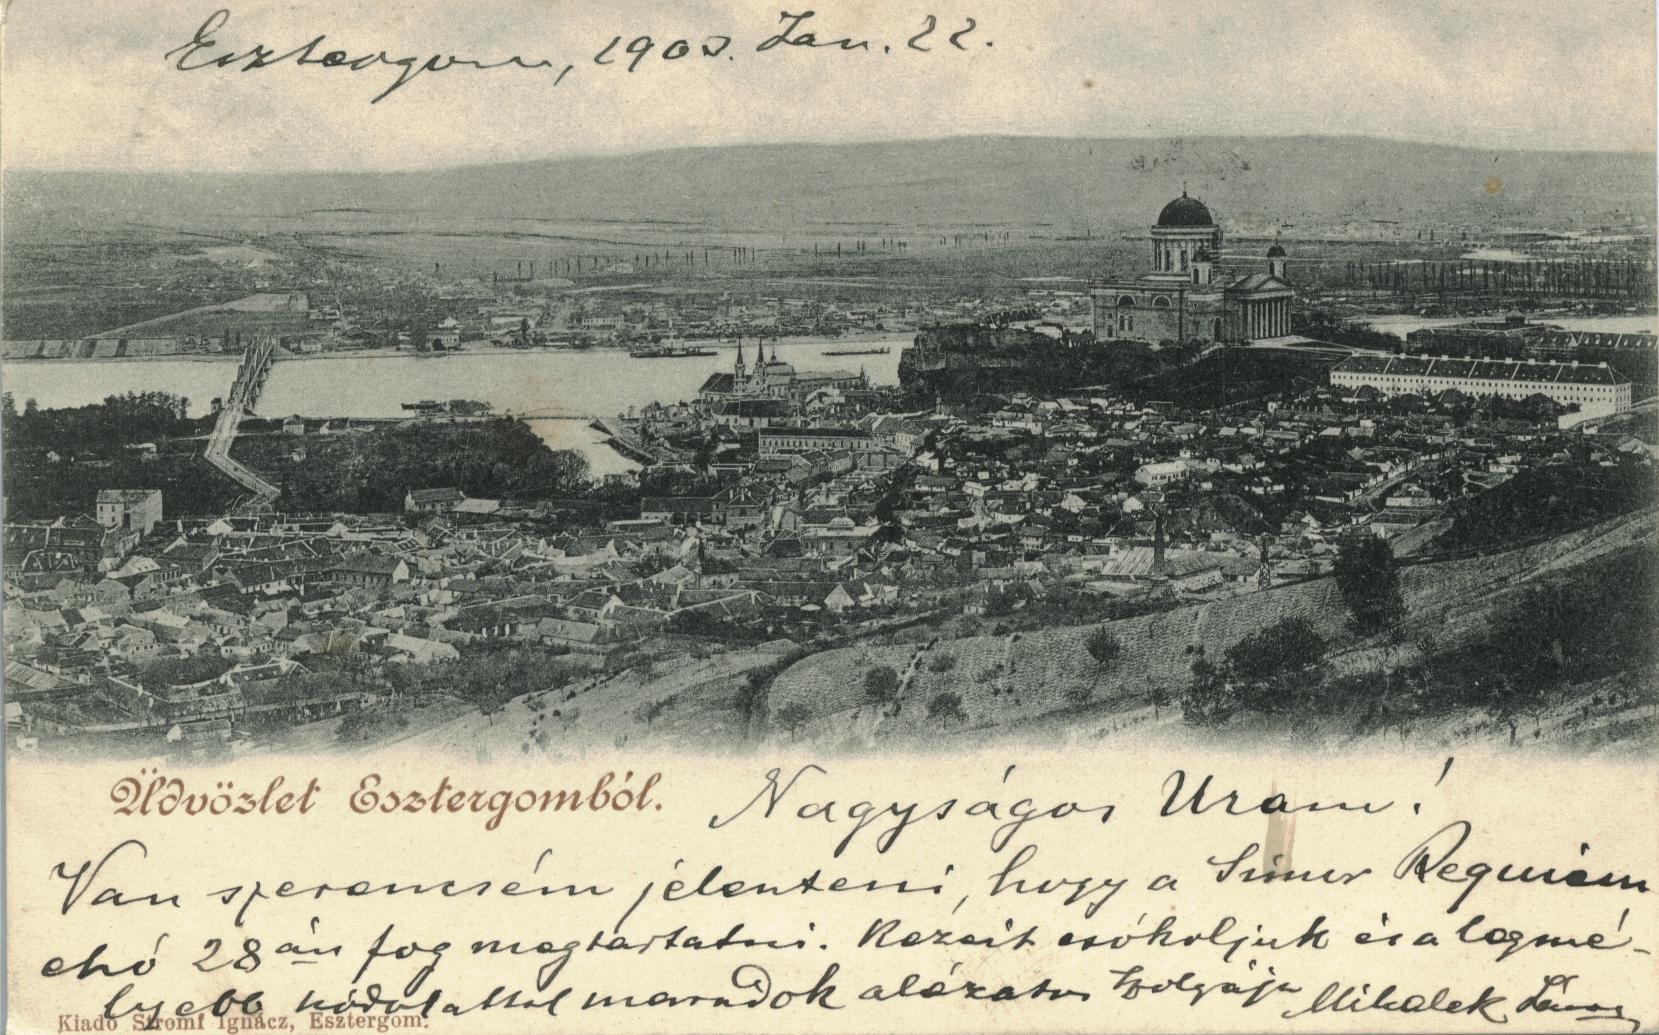 Esztergom, 1903. Jan. 22.
Üdvözlet Esztergomból.
Nagyságos Uram!
Van szerencsém jelenteni, hogy a Simor Requiem
e hó 28án fog megtartatni. Kezeit csókoljuk és a legmé-
lyebb hódolattal maradok alázatos szolgája Mihalek
Kiadó Stromf Ignácz, Esztergom.